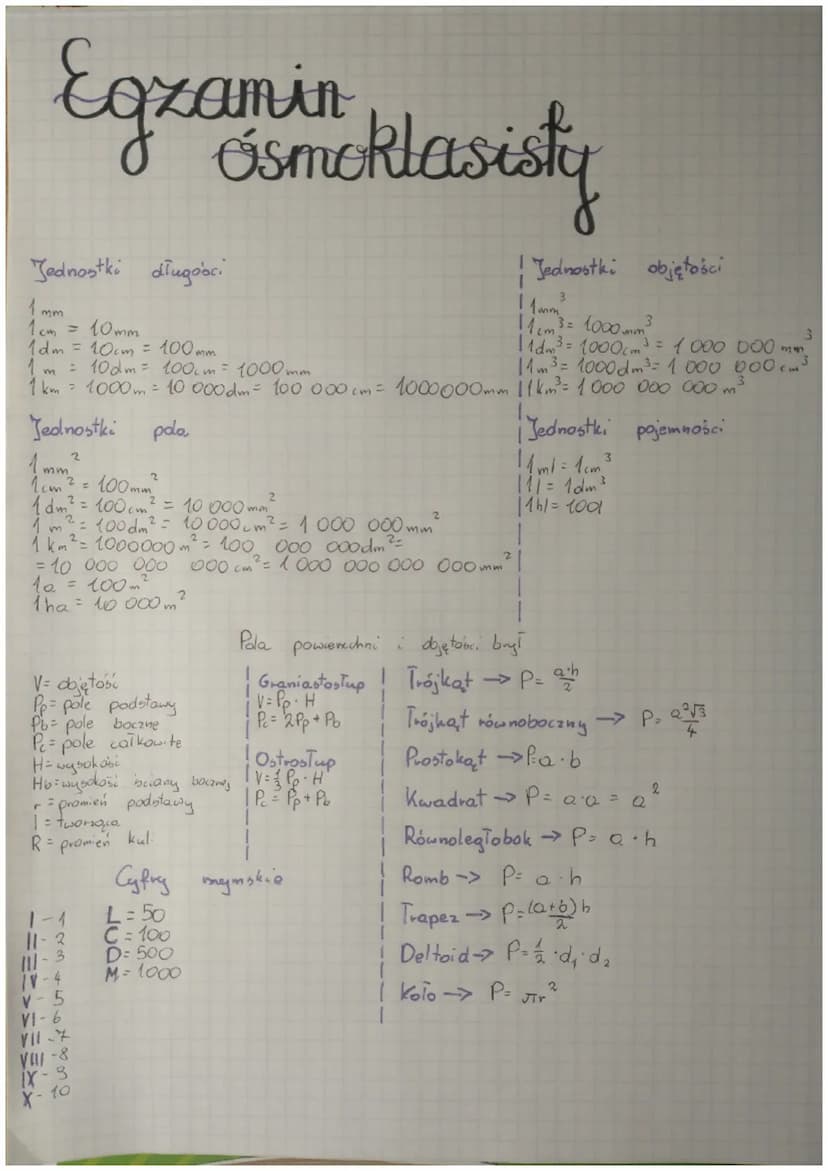 Egzamin
ósmoklasisty
Jednostki długości
1 mm
1 cm = 10 mm
1 dm = 10 cm = 100 mm
1 m = 10 dm = 100 cm = 1000 mm
1 km = 1000 m = 10 000 dm = 100 000 cm = 1000000 mm
Jednostki objętości
1 mm³
1 cm³ = 1000 mm³
1 dm³ = 1000 cm³ = 1 000 000 mm³
1 m³ = 1000 dm³ = 1 000 000 cm³
1 km³ = 1 000 000 000 m³
Jednostki pola
1 mm²
1 cm² = 100 mm²
1 dm² = 100 cm² = 10 000 mm²
1 m² = 100 dm² = 10 000 cm² = 1 000 000 mm²
1 km² = 1000000 m² = 100 000 000 dm² =
= 10 000 000 000 cm² = 1 000 000 000 000 mm²
1 a = 100 m²
1 ha = 10 000 m²
Jednostki pojemności
1 ml = 1 cm³
1 l = 1 dm³
1 hl = 100 l
Pola powierzchni i objętości brył
V = objętość
Pp = pole podstawy
Pb = pole boczne
Pc = pole całkowite
H = wysokość
Hb = wysokość ściany bocznej
r = promień podstawy
l = tworząca
R = promień kul
Graniastosłup
V = Pp · H
Pc = 2Pp + Pb
Ostrosłup
V = 1/3 Pp · H
Pc = Pp + Pb
Trójkąt → P = a·h/2
Trójkąt równoboczny → P = a²√3/4
Prostokąt → P = a · b
Kwadrat → P = a · a = a²
Równoległobok → P = a · h
Romb → P = a · h
Trapez → P = (a+b)h/2
Deltoid → P = 1/2 · d₁ · d₂
Koło → P = πr²
Cyfry rzymskie
I - 1
II - 2
III - 3
IV - 4
V - 5
VI - 6
VII - 7
VIII - 8
IX - 9
X - 10
L = 50
C = 100
D = 500
M = 1000